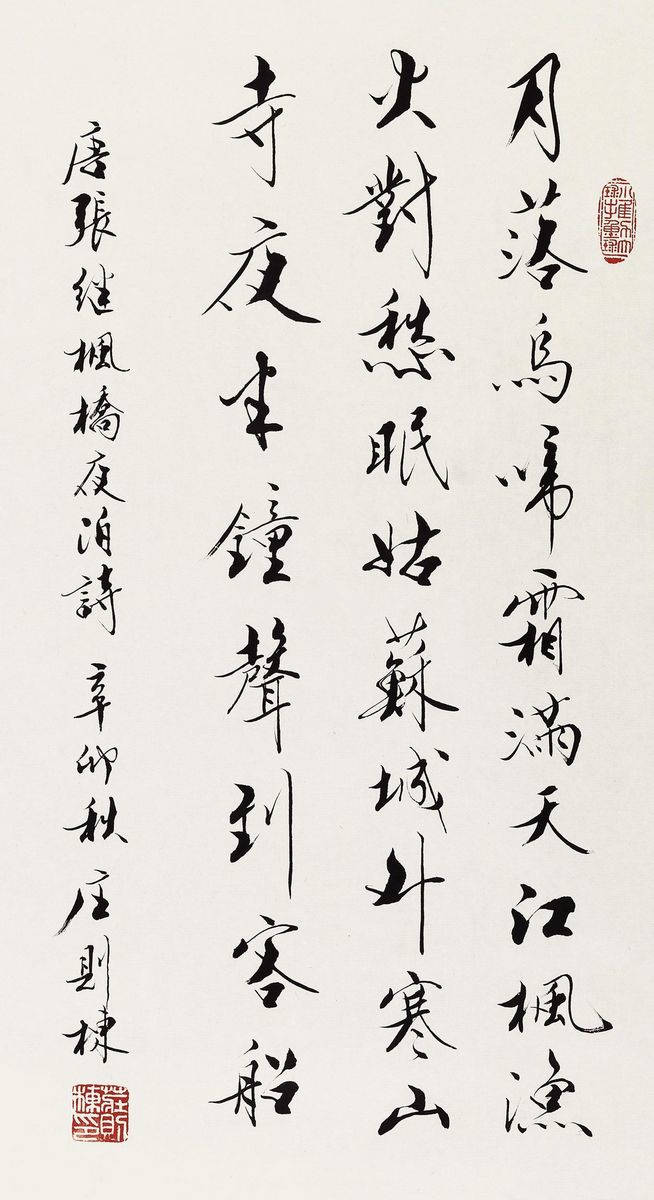 月落烏啼霜滿天江楓漁
火對愁眠姑蘇城外寒山
寺夜半鐘聲到客船
唐張继楓橋夜泊詩 辛卯秋 庄則棟
莊則棟印